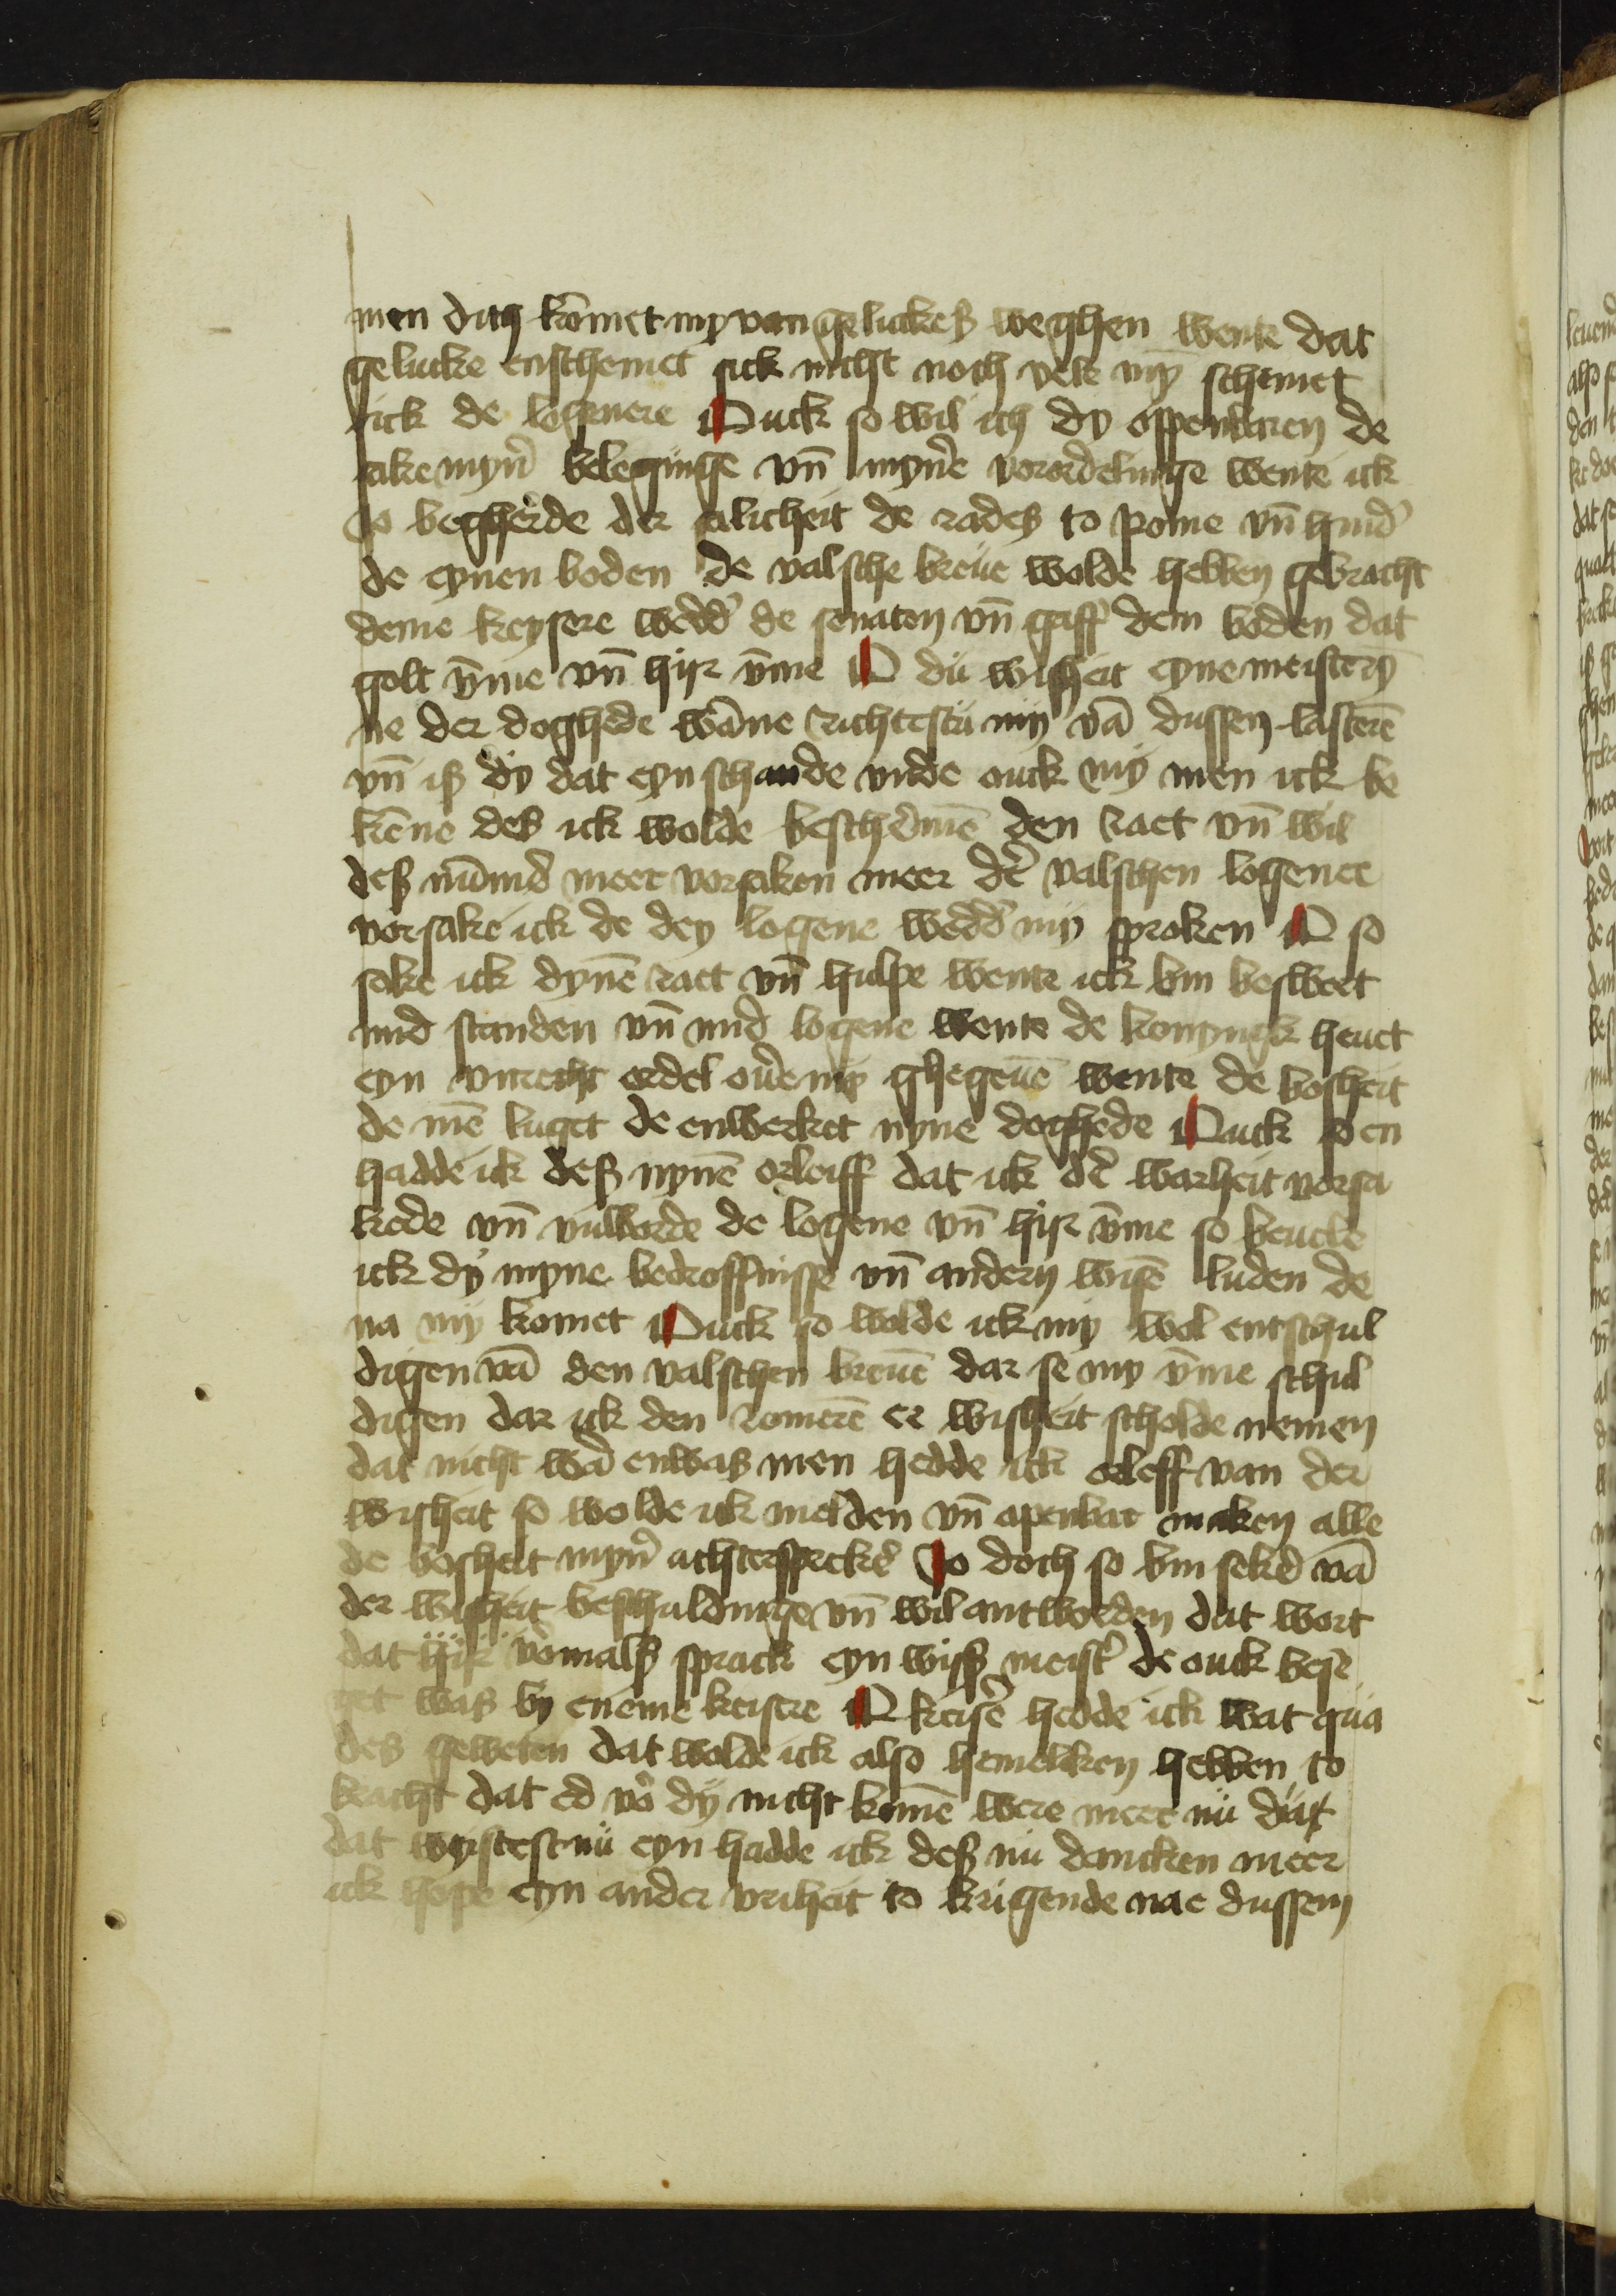 men dith kōmet my van gelucke&#223; weghen wente dat
gelucke enschemet sick nicht noch vele myn schemet
sick de logenere Ouck so wil ich dy openbaren de
sake myn̛ beleginge vn̄ myn̛e vorordelinge wente ick
so begherde der salicheit de rades to Rome vn̄ hind̛
de eynen boden de valsche breue wolde hebben gebracht
deme keysere wedd̛ de senaten vn̄ gaff dem boden dat
golt v̄me vn̄ hijr v̄me O du wisheit eyne meistery
ne der doghede wāne richtestu my vā dussen lasterē
vn̄ iß dy dat eyn schande vnde ouck my men ick be
kēne des ick wolde bescherme̅ den raet vn̄ wil
deß nūmd̛ meer vorsaken meer d̛e valschen logener
vorsake ick de dey logene wedd̛ my sproken O so
soke ick dynē raet vn̄ hulpe wente ick bin beswert
mid standen vn̄ mid logene wente de konyngk heuet
eyn vnrecht ordel oưe my ghegeuē wente de bosheit
de mē luget de enwerket nyne doghede Ouck so en
hadde ik deß nynē orloiff dat ik d̛e warheit vorsa
kede vn̄ vulborde de logene vn̄ hijr v̄me so beuele
ick dy myne bedroffnisse vn̄ andern wisē luden de
na my komet Ouck so wolde ick my wol entschul
digen vā den valschen breuē dar se my v̄me schul
digen dar ick den romerē er wisheit scholde nemen
dat nicht wad̛ enwaß men hedde ick orleff van der
wisheit so wolde ick melden vn̄ apenbar maken alle
de bosheit myn̛ achterspreked̛ Jo doch so bin seked̛ vā
der wisheit beschuldinge vn̄ wil antworden dat wort
dat hijr vo̅mals sprack eyn wiß meist̛ de ouck bese
get was by eneme keisere O keis̛e hedde ick wat qua
des geweten dat wolde ick also hemeliken hebben to
bracht dat ed vo̅ dy nicht komē were mere nu du
dat wystest nu eyn hadde ick deß nu dancken meer
ick hope eyn ander vriheit to krigende nae dussem